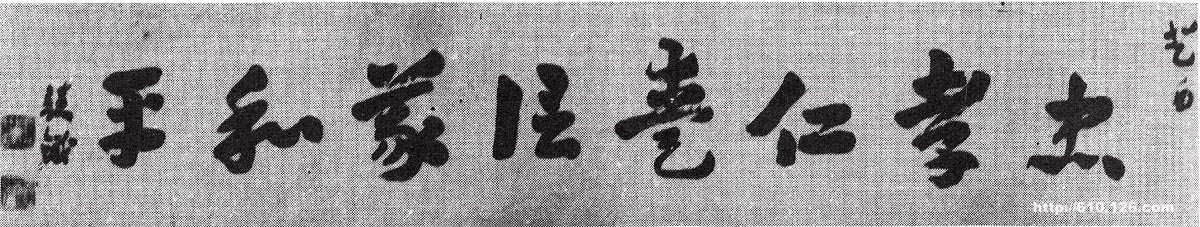 忠孝仁愛信義和平
http://610.126.com